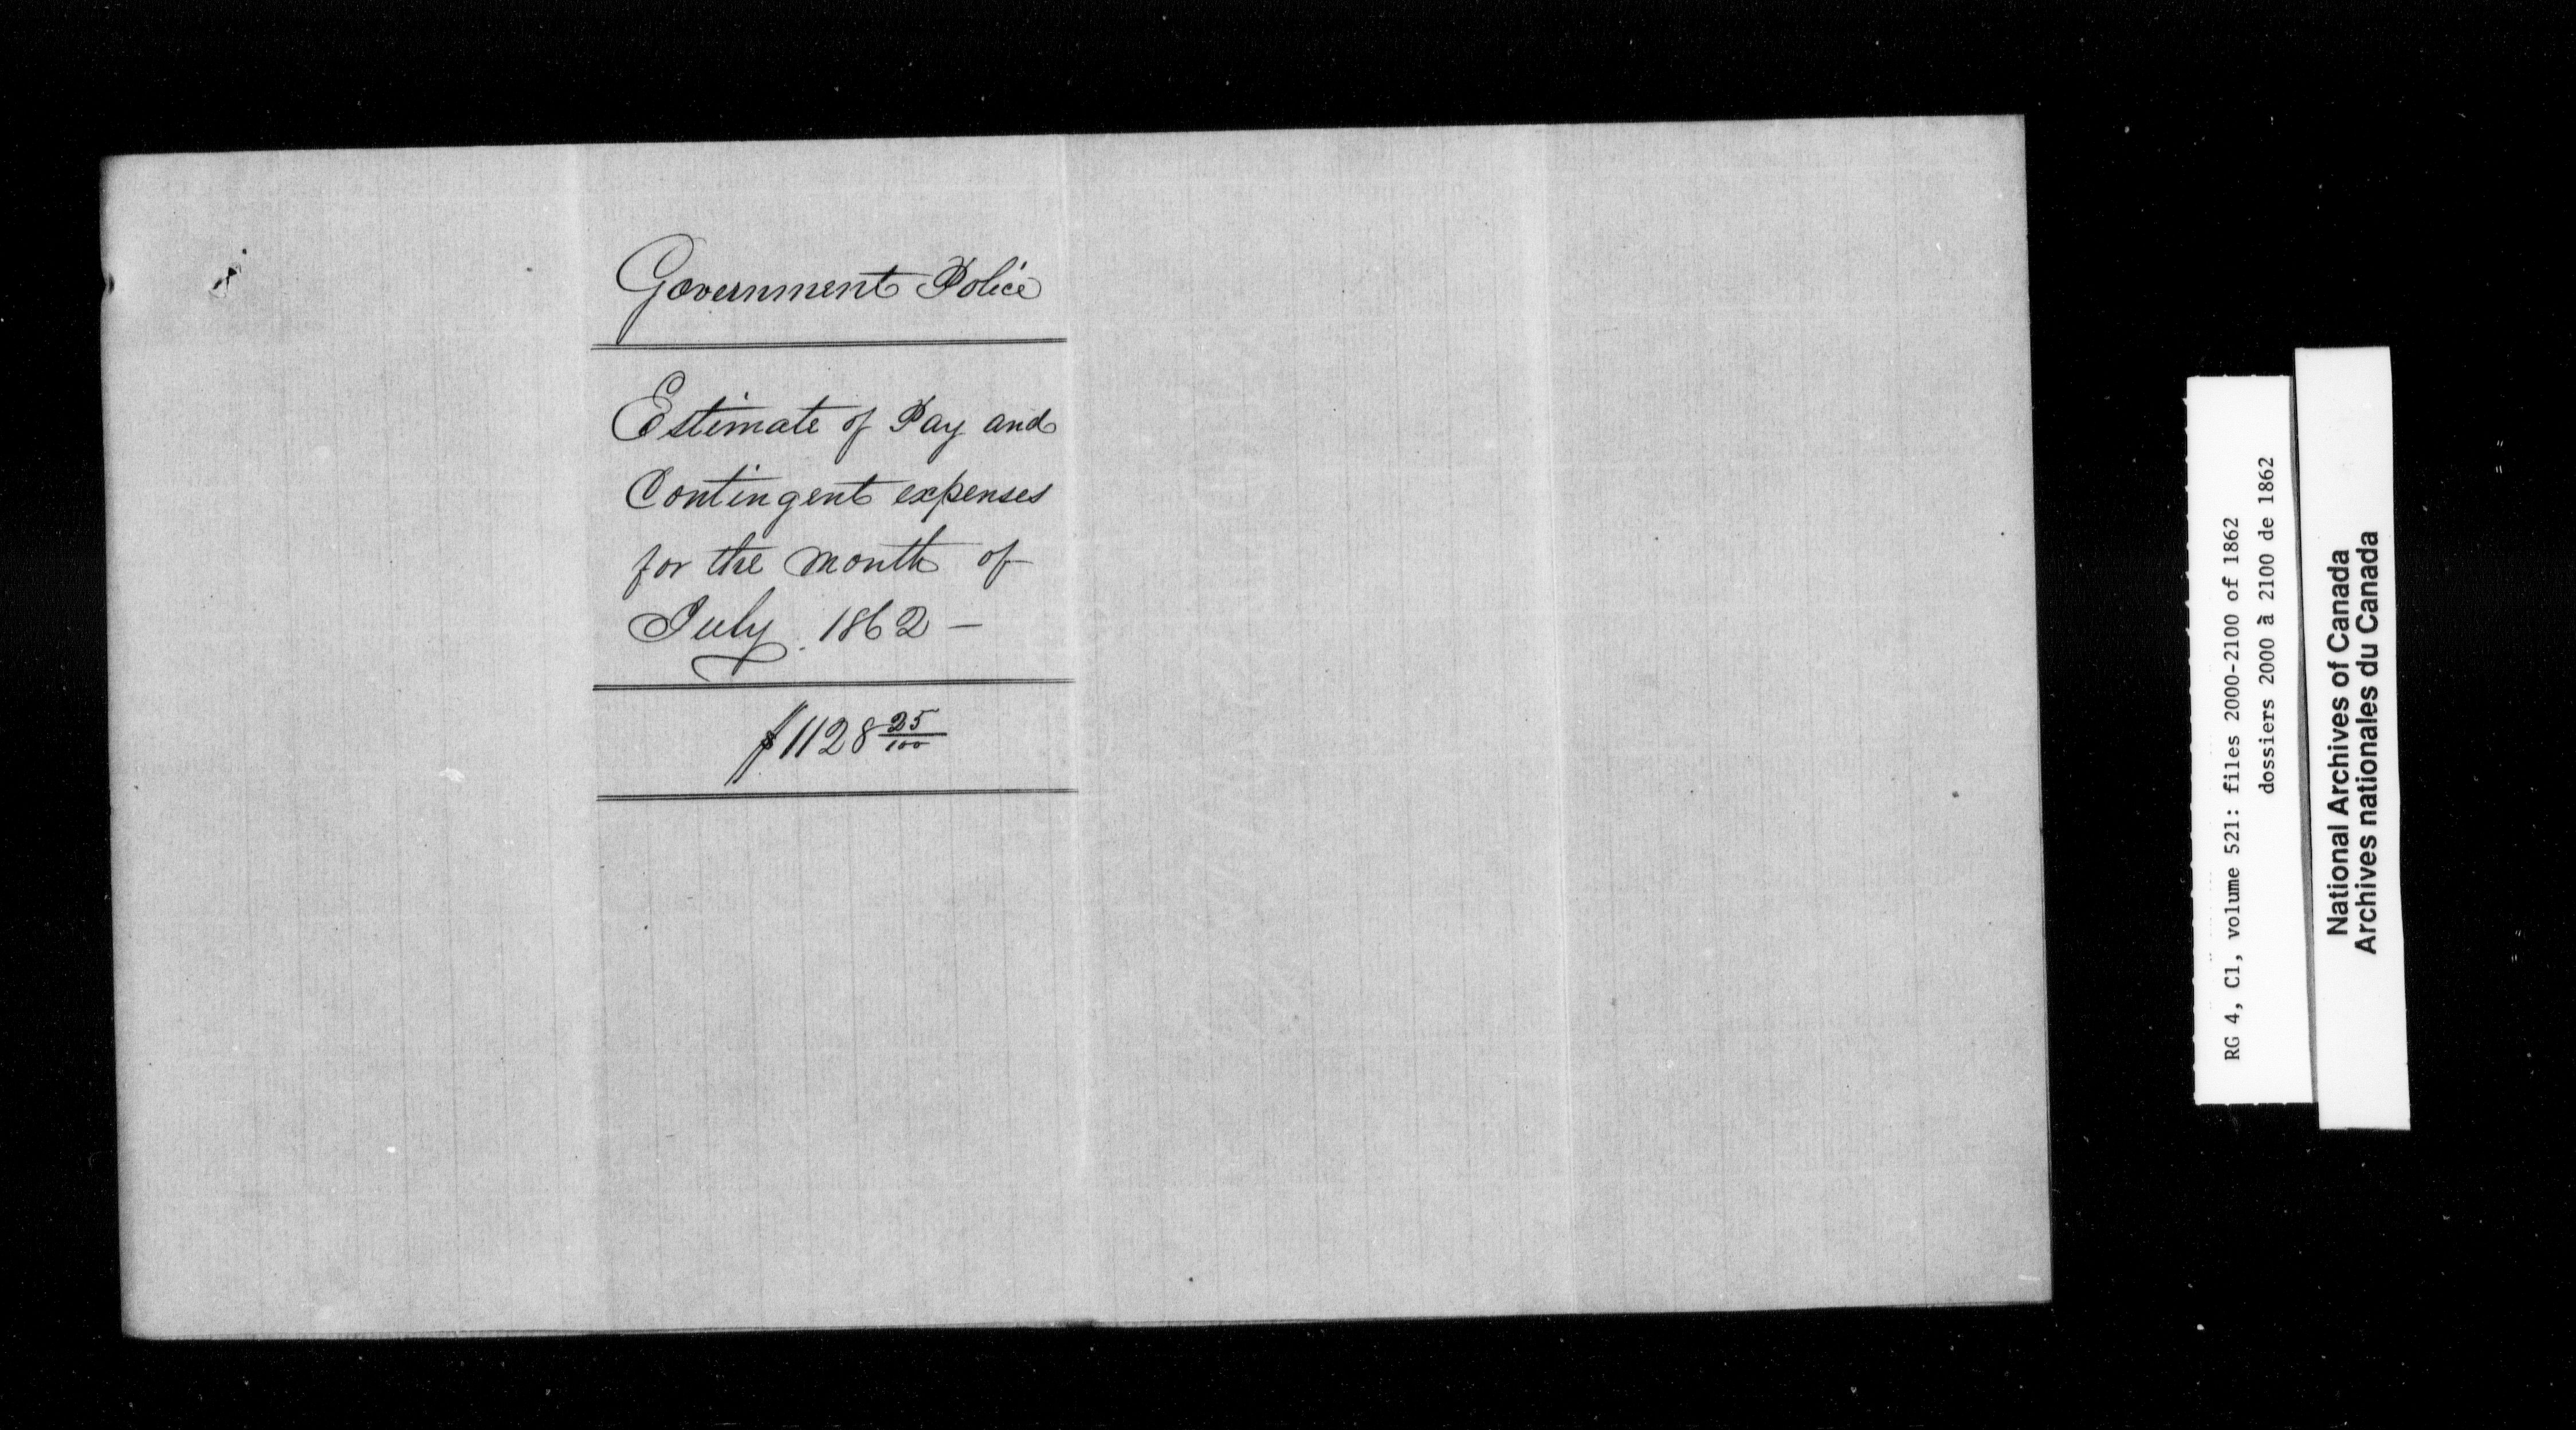 Government Police
Estimate of Pay and
Contingent expenses
for the month of
July. 1862 –
$1128 25/100
RG 4, C1, volume 521: files 2000-2100 of 1862
dossiers 2000 à 2100 de 1862
National Archives of Canada
Archives nationales du Canada